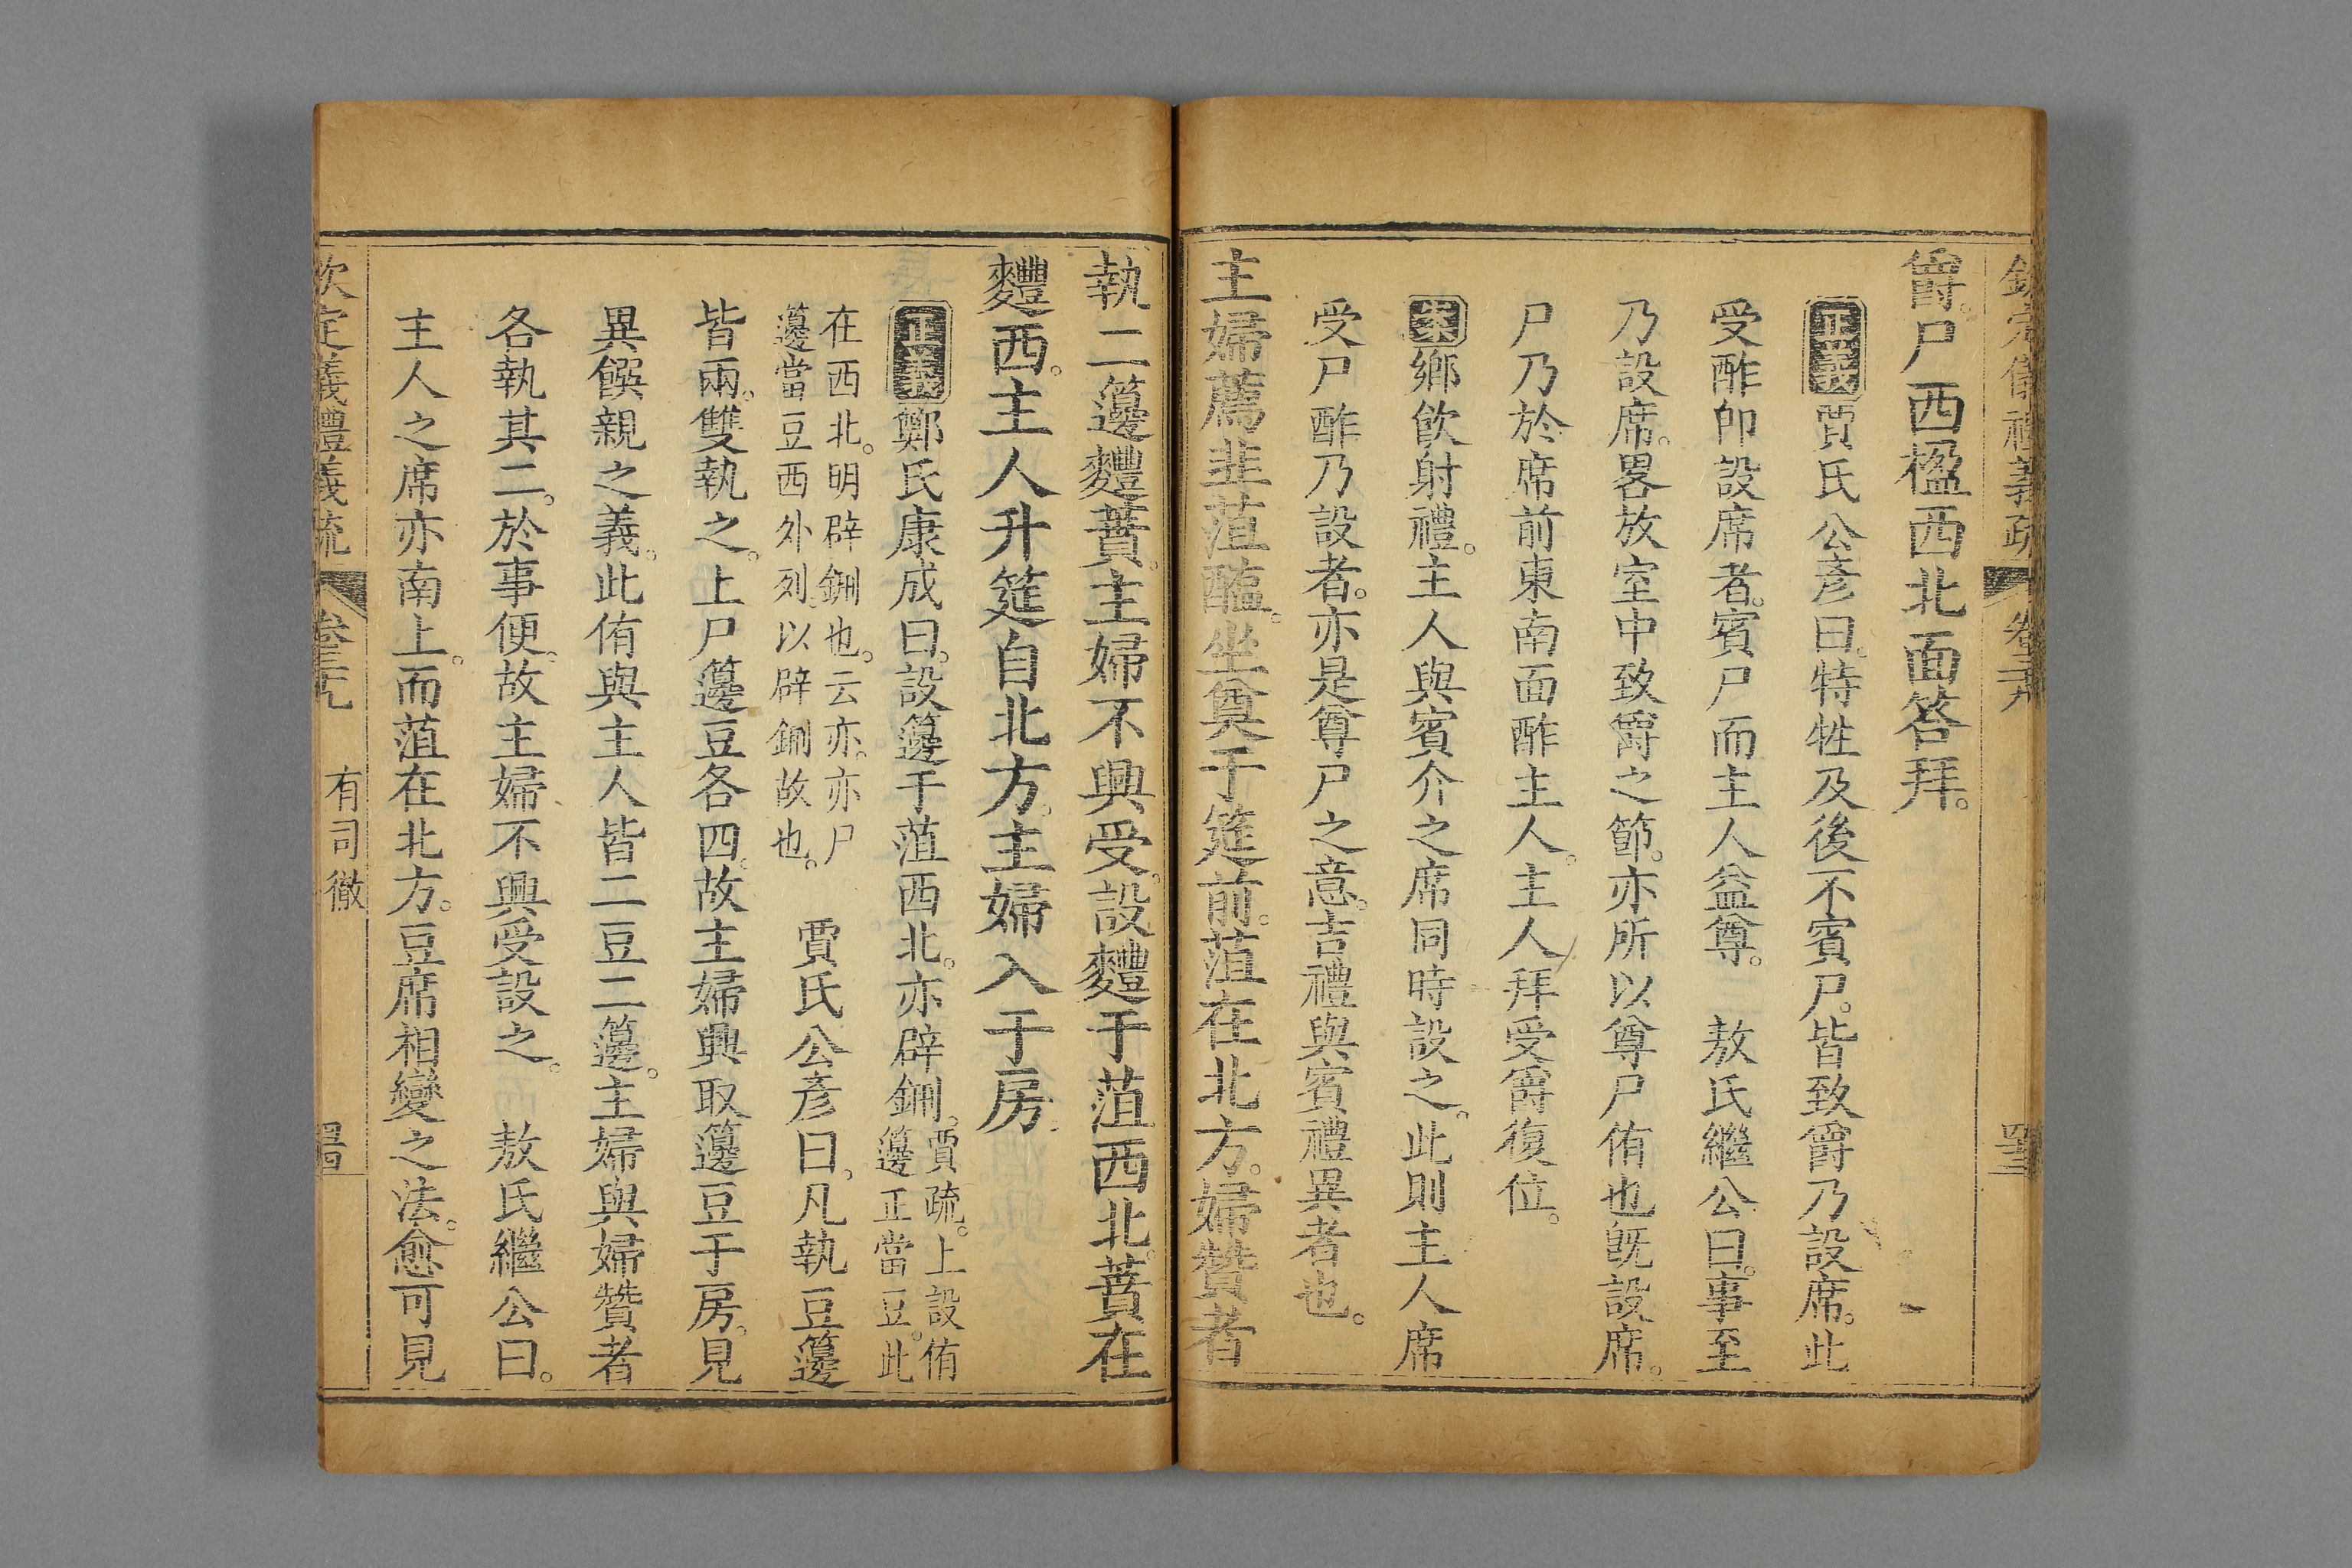 爵。尸西楹西北面答拜。
正義賈氏公彥曰。特牲及後不賓尸。皆致爵乃設席。此
受酢卽設席者。賓尸而主人益尊。 敖氏繼公曰。事至
乃設席。畧放室中致爵之節。亦所以尊尸侑也旣設席。
尸乃於席前東南面酢主人。主人拜受爵復位。
案鄉飲射禮。主人與賓介之席同時設之。此則主人席
受尸酢乃設者。亦是尊尸之意。吉禮與賓禮異者也。
主婦薦韭菹醢。坐奠于筵前。菹在北方。婦贊者
執二籩麷蕡。主婦不興受。設麷于菹西北。蕡在
麷西。主人升筵自北方。主婦入于房。
正義鄭氏康成曰。設籩于菹西北。亦辟鉶。賈疏。上設侑籩正當豆。此
在西北。明辟鉶也。云亦。亦尸籩當豆西外列。以辟鉶故也。 賈氏公彥曰。凡執豆籩
皆兩。雙執之。上尸籩豆各四。故主婦興取籩豆于房。見
異饌親之義。此侑與主人皆二豆二籩。主婦與婦贊者
各執其二。於事便。故主婦不興受設之。 敖氏繼公曰。
主人之席亦南上。而菹在北方。豆席相變之法。愈可見
欽定義禮義疏 卷三九 有司徹